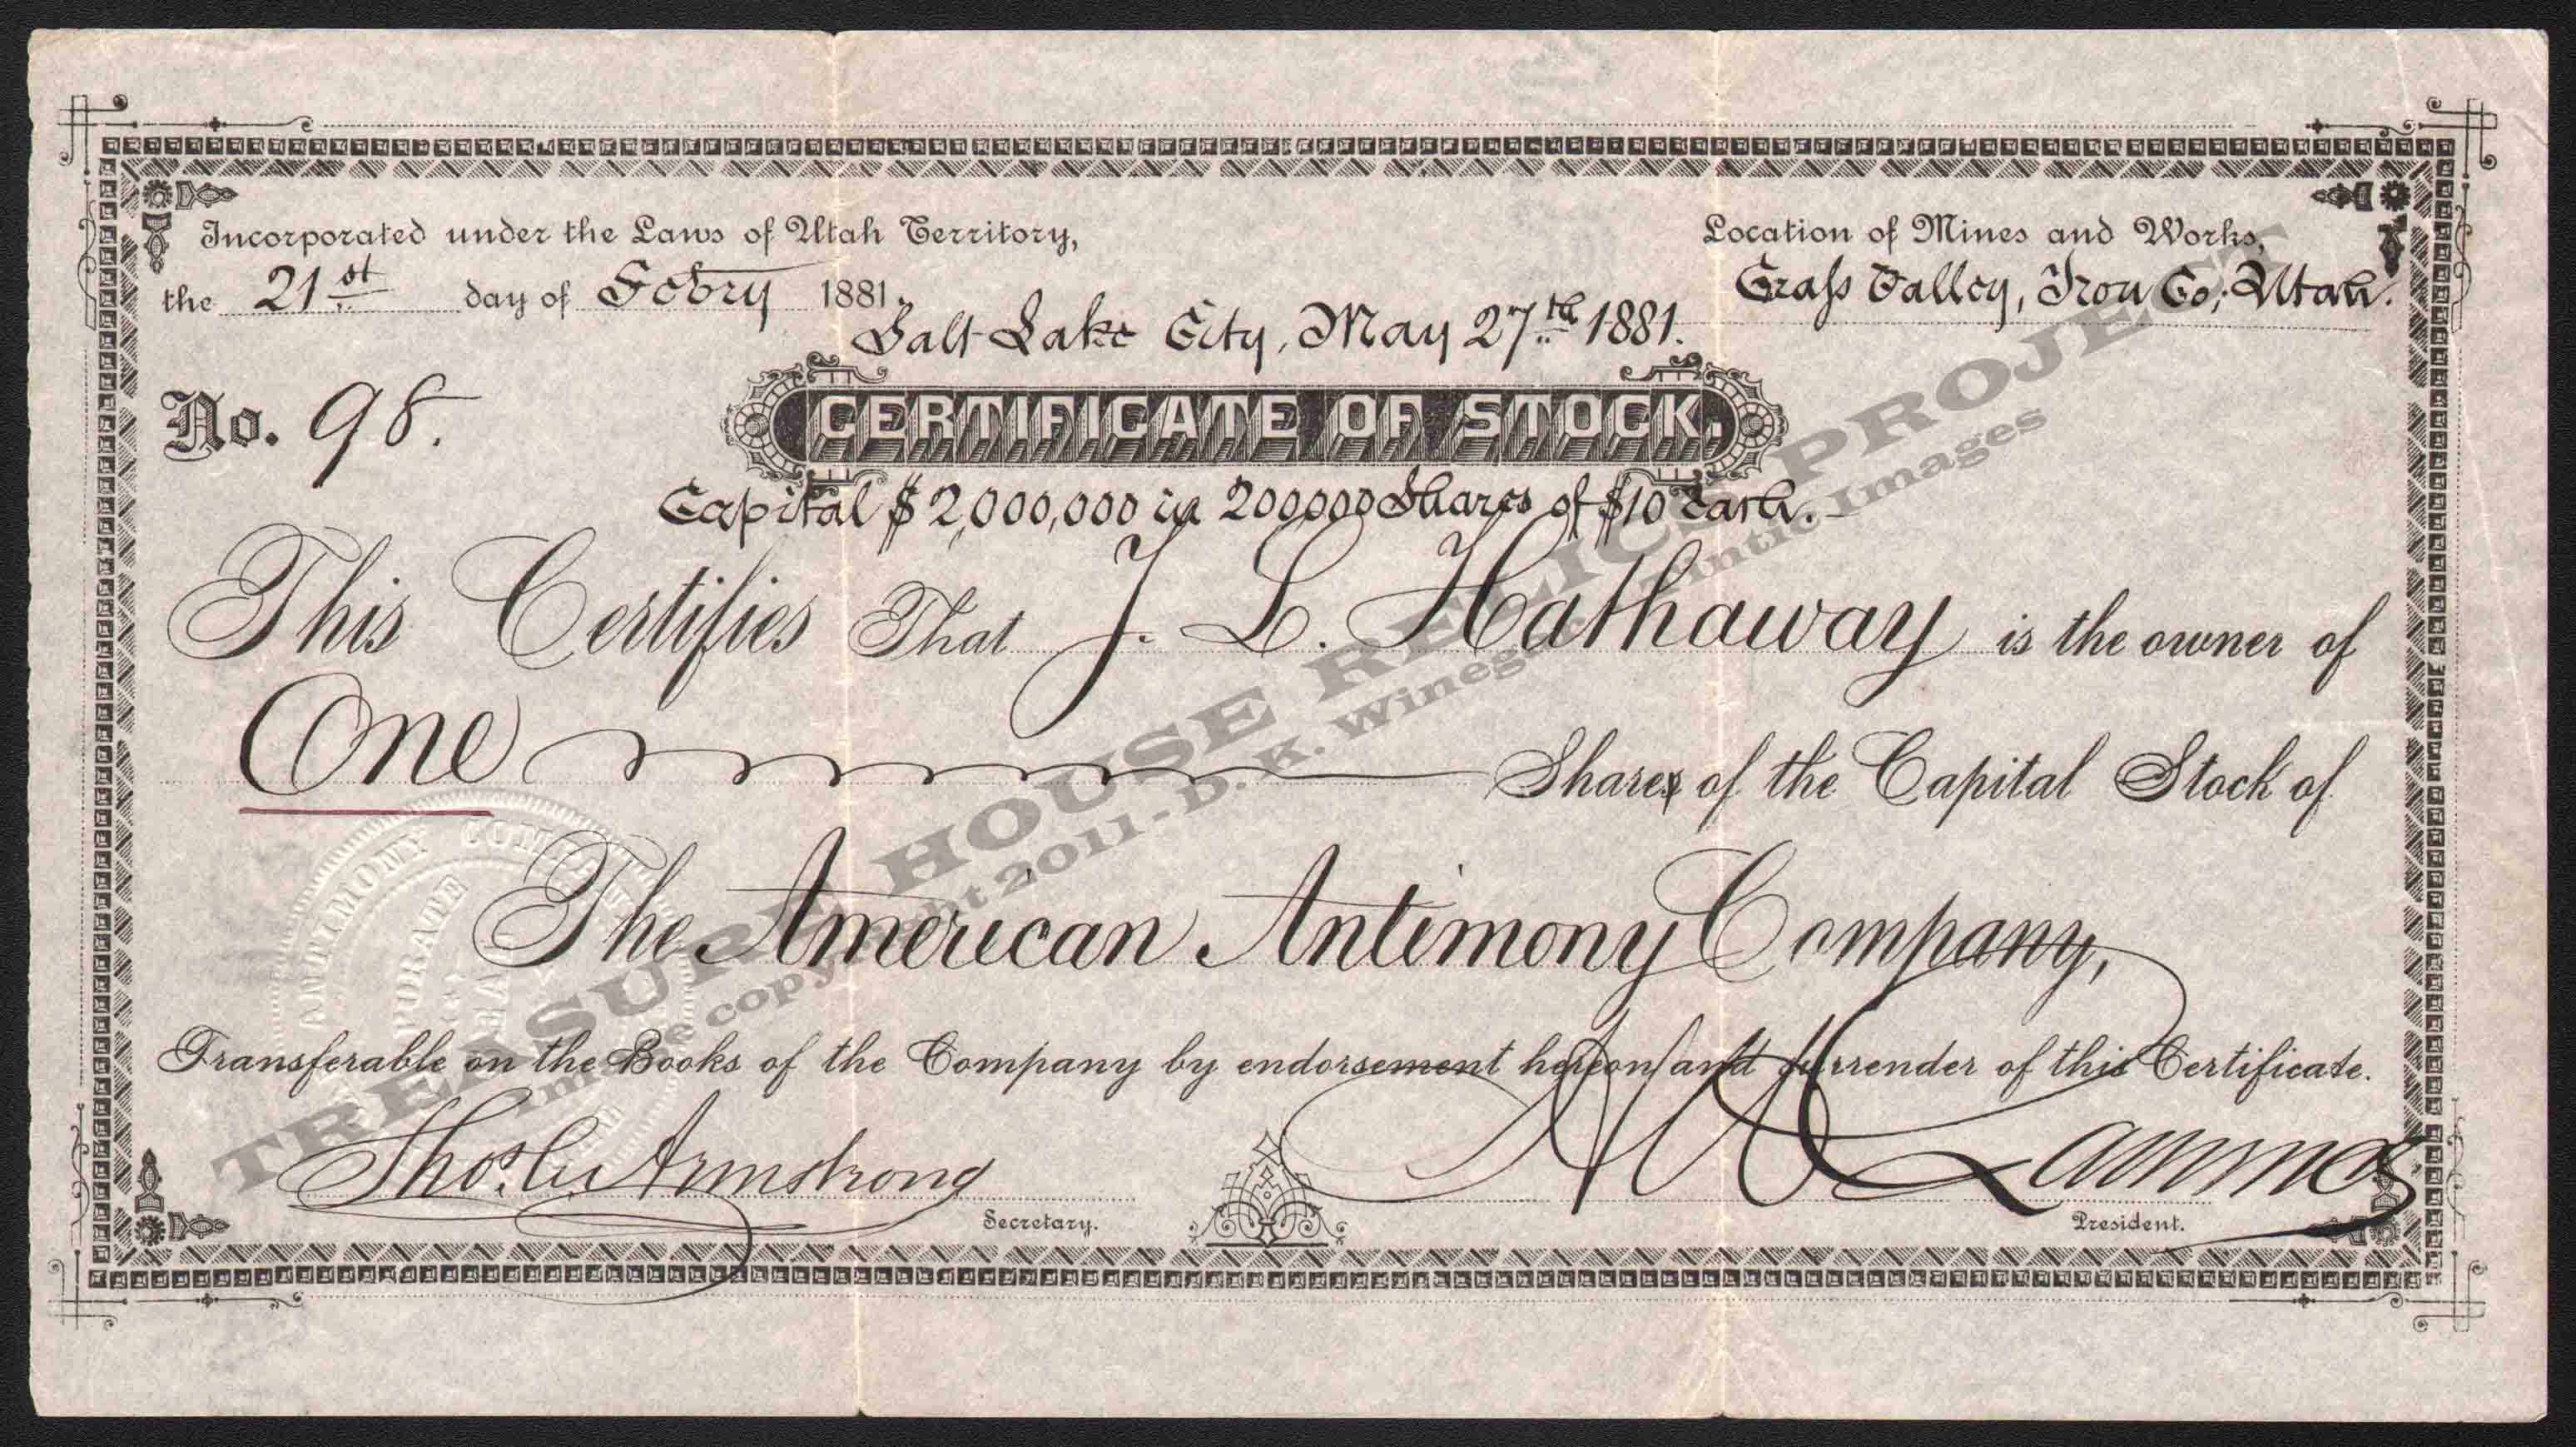 Incorporated under the Laws of Utah Territory,
the 21st day of Febry 1881.
Location of Mines and Works,
Grass Valley, Iron Co; Utah.
Salt Lake City, May 27th 1881.
No. 98.
CERTIFICATE OF STOCK.
Capital $2,000,000 in 200000 Shares of $10 Each.
This Certifies That J. L. Hathaway is the owner of
One Shares of the Capital Stock of
The American Antimony Company,
Transferable on the Books of the Company by endorsement hereon and surrender of this Certificate.
Thos. Armstrong
Secretary.
Lammos
President.
ANTIMONY COMPANY
TREASURE HOUSE RELICS PROJECT
Image copyright 2011 - D. K. Winegar Tintic Images